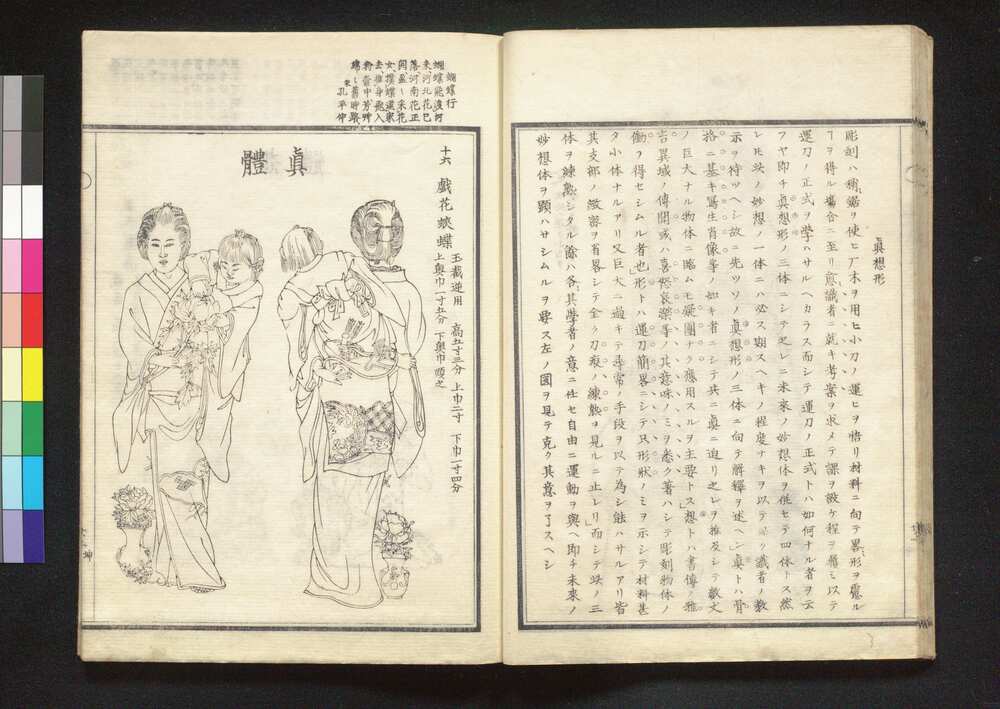 眞想形
彫刻ハ稍鋸ヲ使ヒ厂木ヲ用ヒ小刀ノ運ヒヲ悟リ材料ニ向テ畧形ヲ慝ル
ヿヲ得ル塲合ニ至リ意識者ニ就キ考案ヲ求メテ課ヲ微ケ程ヲ層ミ以テ
運刀ノ正式ヲ学ハサルヘカラス而シテ運刀ノ正式トハ如何ナル者ヲ云
フヤ即チ眞想形ノ三体ニシテ之レニ未来ノ妙想体ヲ併セテ四体トス然
レ𪜈此ノ妙想ノ一体ニハ必ス期スヘキノ程度ナキヲ以テ
ク識者ノ教
示ヲ待ツヘシ故ニ先ツソノ眞想形ノ三体ニ向テ解釋ヲ述ヘン眞トハ骨
格ニ基キ寫生肖像等ノ如キ者ニシテ共ニ眞ニ迫リ之レヲ推及シテ
ノ巨大ナル物体ニ臨ムモ凝團ナク應用スルヲ主要トス想トハ書傳ノ雅
言異域ノ傳聞或ハ喜怒哀樂等ノ其意味ノミヲ悉ク著ハシテ彫刻物体ノ
働ヲ得セシムル者也形トハ運刀簡畧ニシテ只形狀ノミヲ示シテ材料甚
タ小体ナルアリ又巨大ニ過キテ尋常ノ手段ヲ以テ為シ能ハサルアリ皆
其支部ノ緻密ヲ省畧シテ全ク刀痕ノ練熟ヲ見ルニ止レリ而シテ此ノ三
体ヲ練熟シタル餘ハ各其學者ノ意ニ任セ自由ニ運動ヲ與ヘ即チ未來ノ
妙想体ヲ顕ハサシムルヲ要ス左ノ圖ヲ見テ克ク其意ヲ了スヘシ
蝴蝶行
蝴蝶飛渡河
来河北花已
落河南花正
開盈々采花
女撲蝶還
去推身飛入
帶中芳
時
宋孔平仲
十六 戯花蛺蝶 玉截逆用 高五寸三分 上巾二寸 下巾一寸四分
上奥巾一寸五分 下奥巾順之
眞體